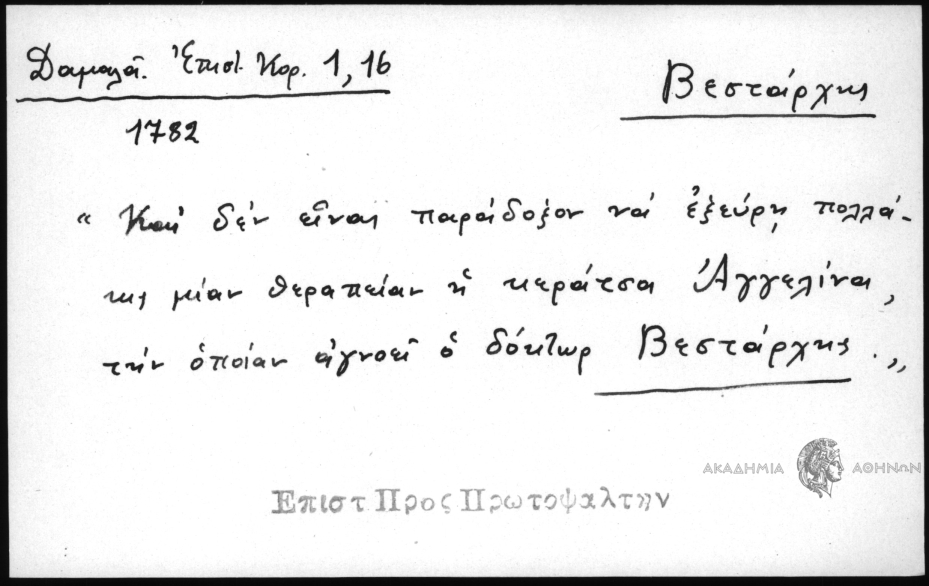 Δαμαλᾶ. Ἐπιστ. Κορ. 1, 16
Βεστάρχης
1782
“ Καὶ δέν εἶναι παράδοξον νά ἐξεύρῃ πολλά-
κις μίαν θεραπείαν ἡ κεράτσα Ἀγγελίνα,
τήν ὁποίαν ἀγνοεῖ ὁ δόκτωρ Βεστάρχης.„
ΑΚΑΔΗΜΙΑ ΑΘΗΝΩΝ
Επιστ Προς Πρωτοψαλτην